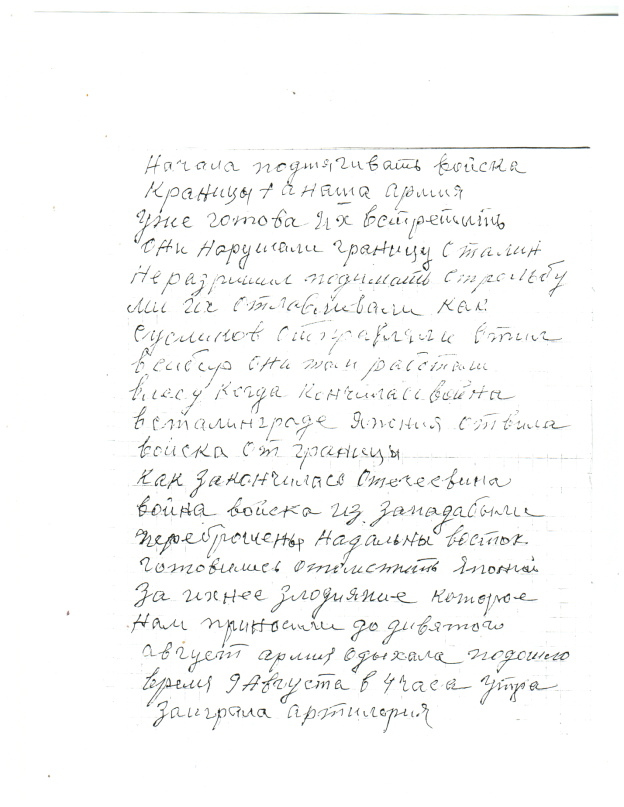 Начала подтягивать войска
Кграницы а наша армия
Уже готова их встретыть
Они нарушали границу Сталин
Неразришил поднимать стрельбу
Ми их отлавливали как
Сусликов отправляли втил
в сибир они там работали
влесу Когда Кончилась война
в сталинграде Япения отвила
войска от границы
Как Закончилась Отечесвина
война войска из Западабыли
переброшены Надальны восток
Готовились отомстить Японии
За ихнее Злодияние которое
Нам приносили до дивятого
август армия одыхала подошло
время 9 Августа в 4 часа утра
Заиграла артилория